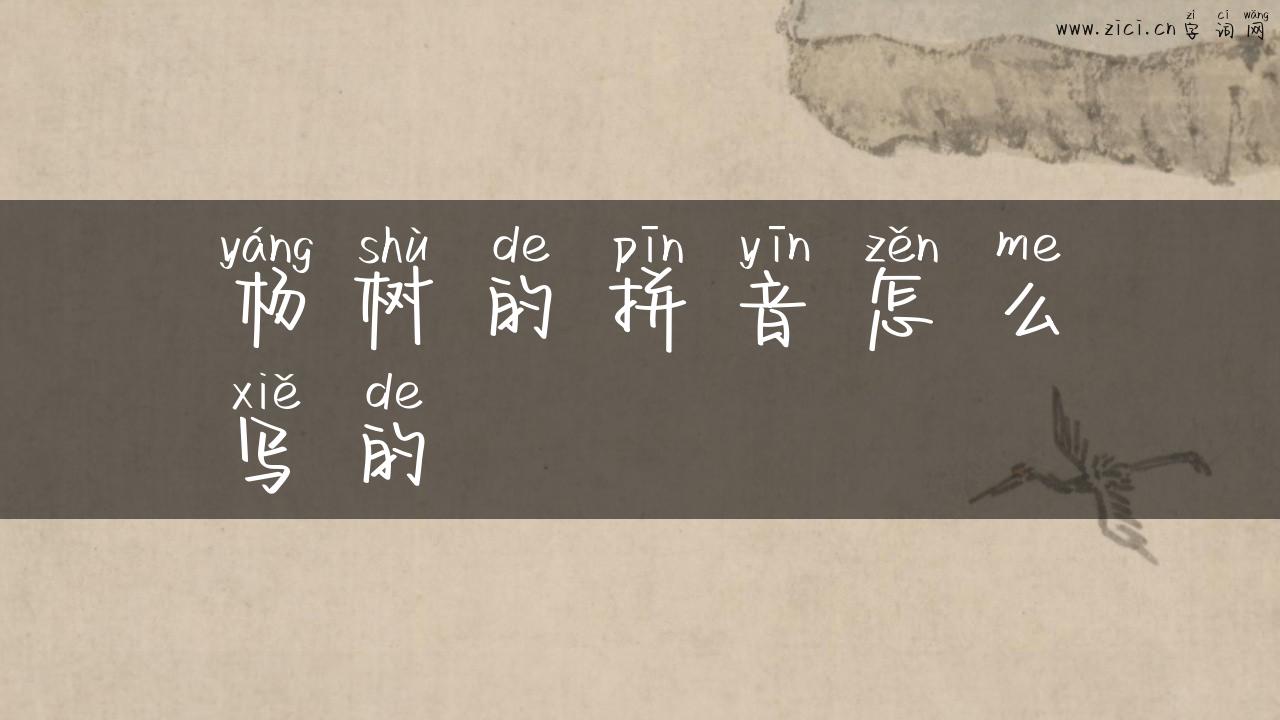 zì cí wǎng
www.zici.cn 字词网
yáng shù de pīn yīn zěn me
杨树的拼音怎么
xiě de
写的